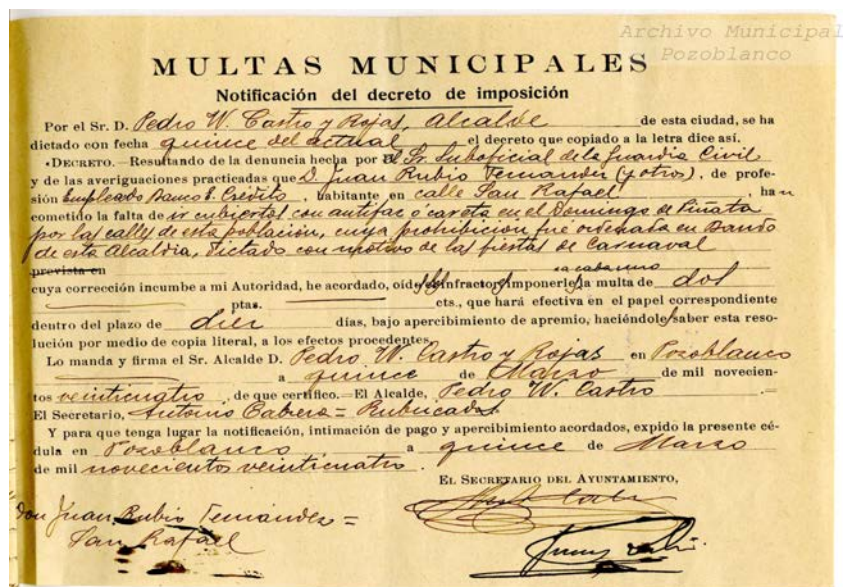 Archivo Municipal
Pozoblanco
MULTAS MUNICIPALES
Notificación del decreto de imposición
Por el Sr. D. Pedro W. Castro y Rojas, Alcalde de esta ciudad, se ha
dictado con fecha quince del actual el decreto que copiado a la letra dice así.
«DECRETO.—Resultando de la denuncia hecha por el Sr. Suboficial de la Guardia Civil
y de las averiguaciones practicadas que D. Juan Rubio Fernandez (y otros), de profe-
sión Empleado Banco E. Crédito, habitante en calle San Rafael, han
cometido la falta de ir cubiertos con antifaz ó careta en el Domingo de Piñata
por las calles de esta población, cuya prohibición fué ordenada en Bando
de esta Alcaldia, dictado con motivo de las fiestas de Carnaval
prevista en
a cada uno
cuya corrección incumbe a mi Autoridad, he acordado, oídos los infractores imponerles la multa de dos
ptas. cts., que hará efectiva en el papel correspondiente
dentro del plazo de diez días, bajo apercibimiento de apremio, haciéndoles saber esta reso-
lución por medio de copia literal, a los efectos procedentes.
Lo manda y firma el Sr. Alcalde D. Pedro W. Castro y Rojas en Pozoblanco
a quince de Marzo de mil novecien-
tos veinticuatro, de que certifico.—El Alcalde, Pedro W. Castro.=
El Secretario, Antonio Cabrera = Rubricados.
Y para que tenga lugar la notificación, intimación de pago y apercibimiento acordados, expido la presente cé-
dula en Pozoblanco a quince de Marzo
de mil novecientos veinticuatro.
EL SECRETARIO DEL AYUNTAMIENTO,
Don Juan Rubio Fernández =
San Rafael